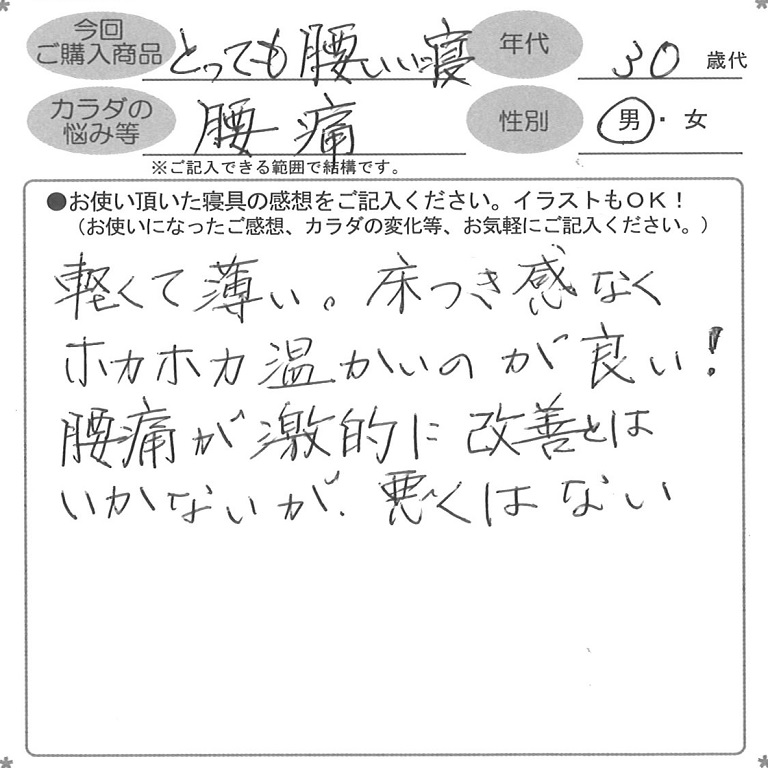 今回
ご購入商品
とっても腰いい寝
年代
30 歳代
カラダの
悩み等
腰痛
性別
男・女
※ご記入できる範囲で結構です。
●お使い頂いた寝具の感想をご記入ください。イラストもOK！
（お使いになったご感想、カラダの変化等、お気軽にご記入ください。）
軽くて薄い。床つき感なく
ホカホカ温かいのが良い！
腰痛が激的に改善とは
いかないが、悪くはない